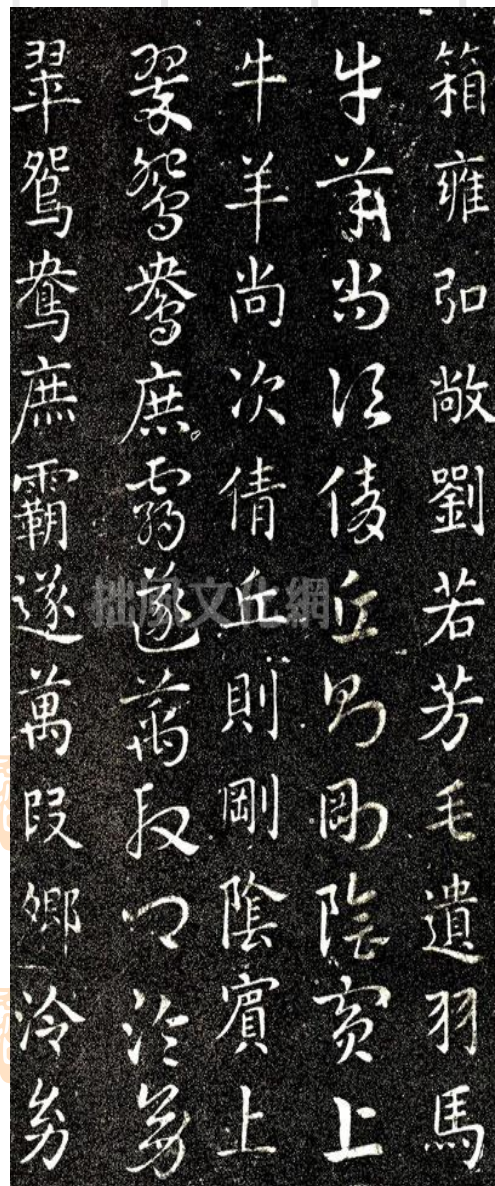 箱雍弘敞劉若芳毛遺羽馬
牛羊尚次倩丘則剛陰賓上
牛羊尚次倩丘則剛陰賓上
翠鴛鴦庶霸遂萬段卿泠幼
翠鴛鴦庶霸遂萬段卿泠幼
拙風文化網